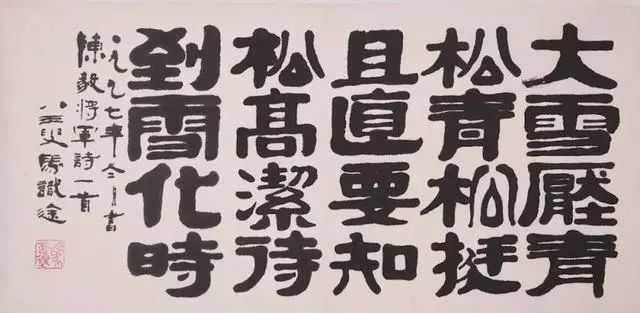 大雪壓青
松青松挺
且直要知
松高潔待
到雪化時
一九九七年書
陳毅將軍詩一首
八三叟馬識途